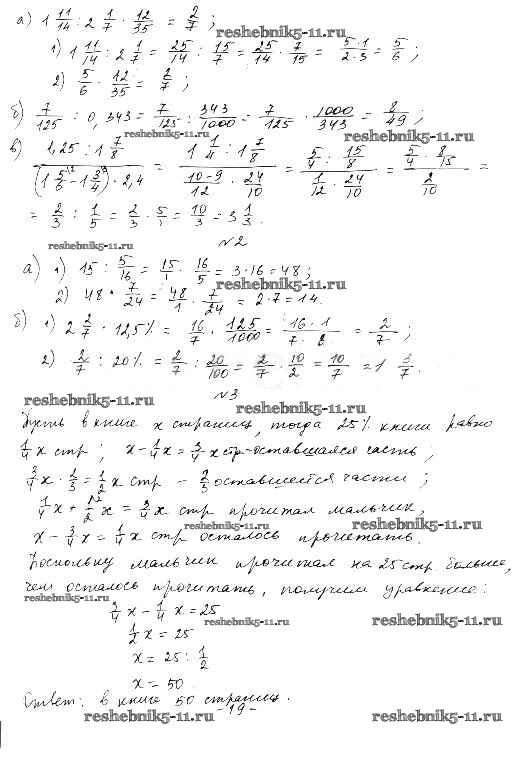 а) 1 11/14 : 2 1/7 · 12/35 = 2/7 ;
reshebnik5-11.ru
1) 1 11/14 : 2 1/7 = 25/14 : 15/7 = 25/14 · 7/15 = 5·1/2·3 = 5/6 ;
2) 5/6 · 12/35 = 2/7 ;
б) 7/125 : 0,343 = 7/125 : 343/1000 = 7/125 · 1000/343 = 8/49 ;
reshebnik5-11.ru
в) 1,25 : 1 7/8 / (1 5/6 - 1 3/4) · 2,4 = 1 1/4 : 1 7/8 / 10-9/12 · 24/10 = 5/4 : 15/8 / 1/12 · 24/10 = 5/4 · 8/15 / 2/10 =
= 2/3 : 1/5 = 2/3 · 5/1 = 10/3 = 3 1/3.
reshebnik5-11.ru
№2
а) 1) 15 : 5/16 = 15/1 · 16/5 = 3·16 = 48 ;
reshebnik5-11.ru
2) 48 · 7/24 = 48/1 · 7/24 = 2·7 = 14.
б) 1) 2 2/7 · 12,5% = 16/7 · 125/1000 = 16·1/7·8 = 2/7 ;
2) 2/7 : 20% = 2/7 : 20/100 = 2/7 · 10/2 = 10/7 = 1 3/7.
№3
reshebnik5-11.ru
reshebnik5-11.ru
Пусть в книге x страниц, тогда 25% книги равно
1/4 x стр ; x - 1/4 x = 3/4 x стр - оставшаяся часть,
3/4 x · 2/3 = 1/2 x стр - 2/3 оставшейся части ;
1/4 x + 1/2 x = 3/4 x стр прочитал мальчик,
reshebnik5-11.ru
x - 3/4 x = 1/4 x стр осталось прочитать.
Поскольку мальчик прочитал на 25 стр больше,
чем осталось прочитать, получим уравнение:
reshebnik5-11.ru
3/4 x - 1/4 x = 25
reshebnik5-11.ru
reshebnik5-11.ru
1/2 x = 25
x = 25 : 1/2
x = 50
Ответ: в книге 50 страниц.
-19-
reshebnik5-11.ru
reshebnik5-11.ru